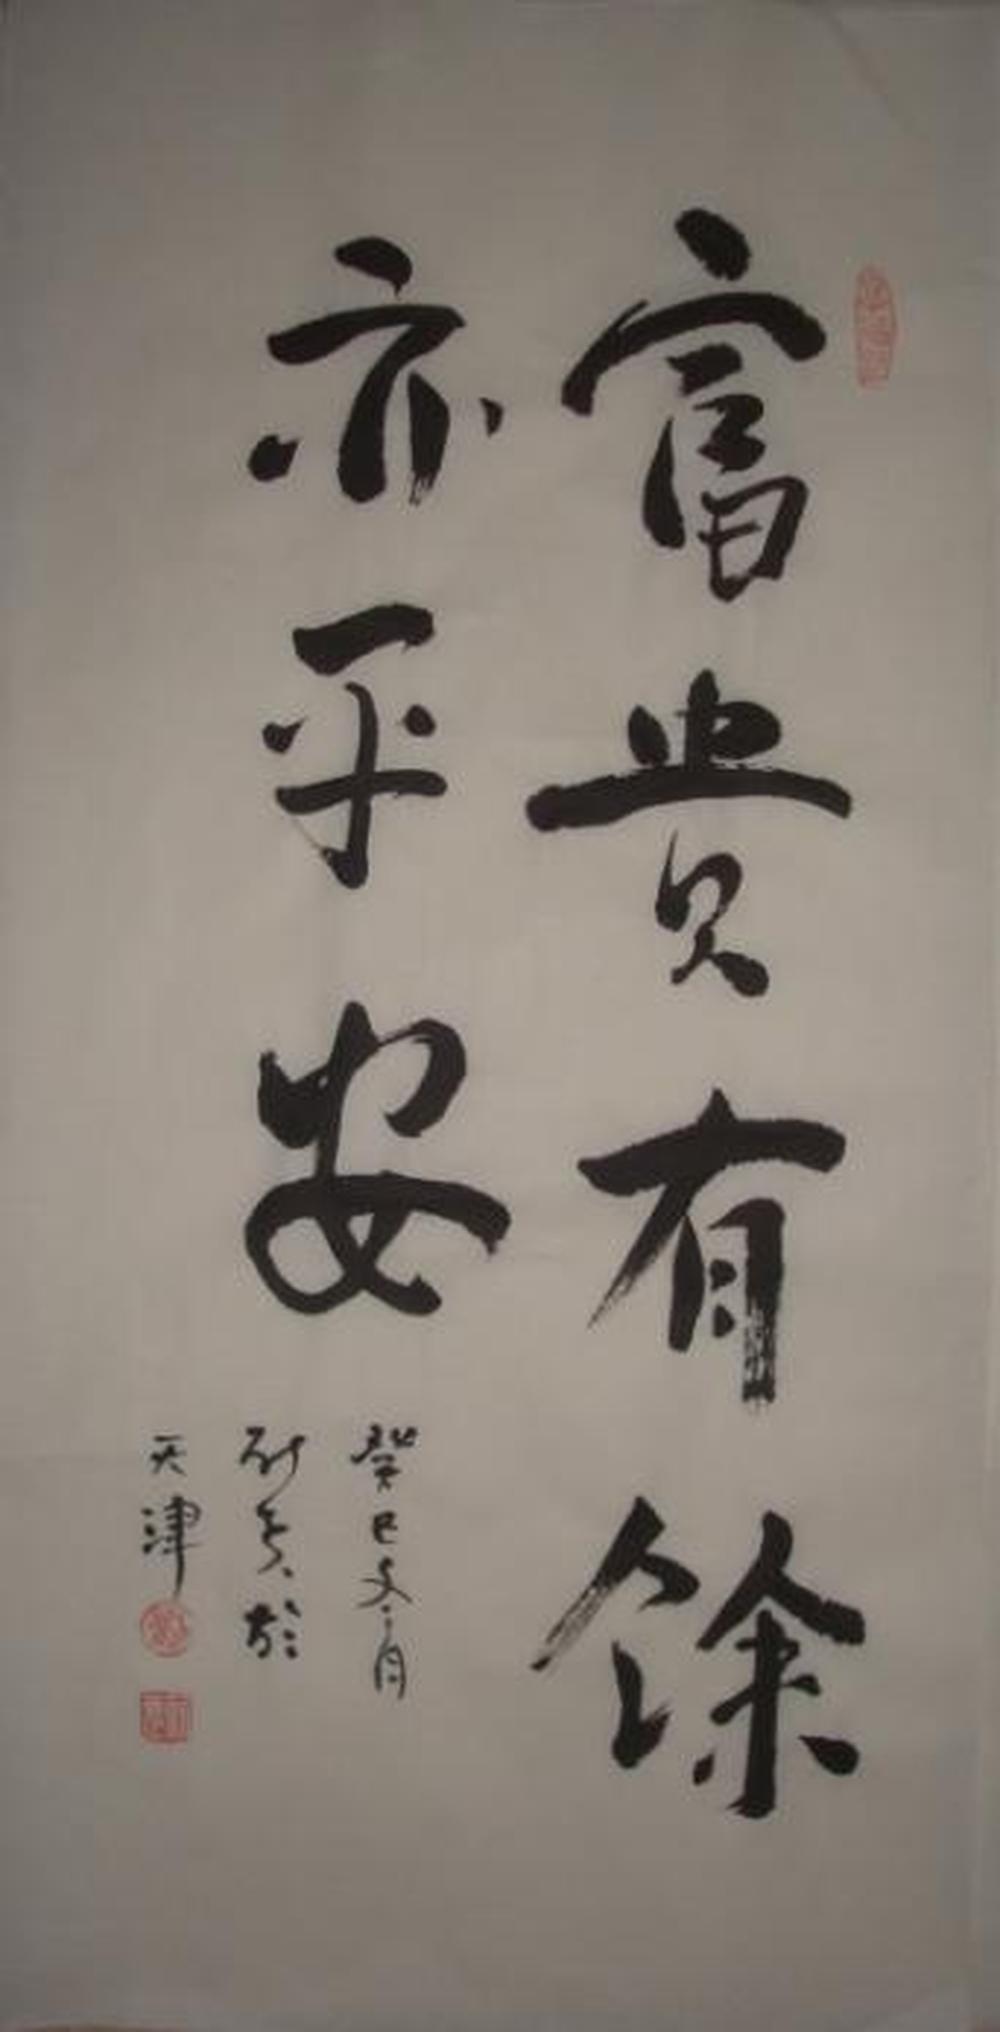 富貴有餘
亦平安
癸巳冬月
於
天津